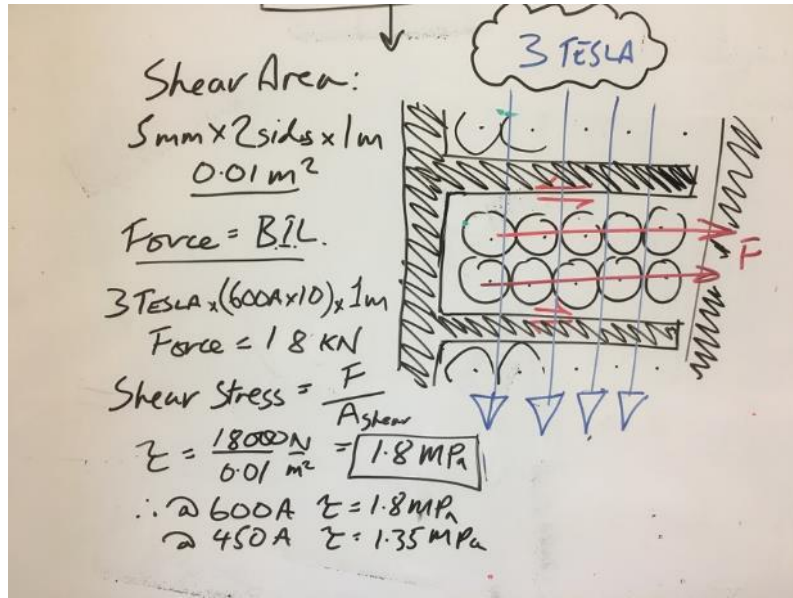 3 TESLA
Shear Area:
5mm x 2sides x 1m
0.01 m²
Force = B.I.L.
3 TESLA x (600A x 10) x 1m
Force = 18 KN
F
Shear Stress = F / A shear
τ = 18000 N / 0.01 m² = 1.8 MPa
∴ @ 600A τ = 1.8 MPa
@ 450A τ = 1.35 MPa